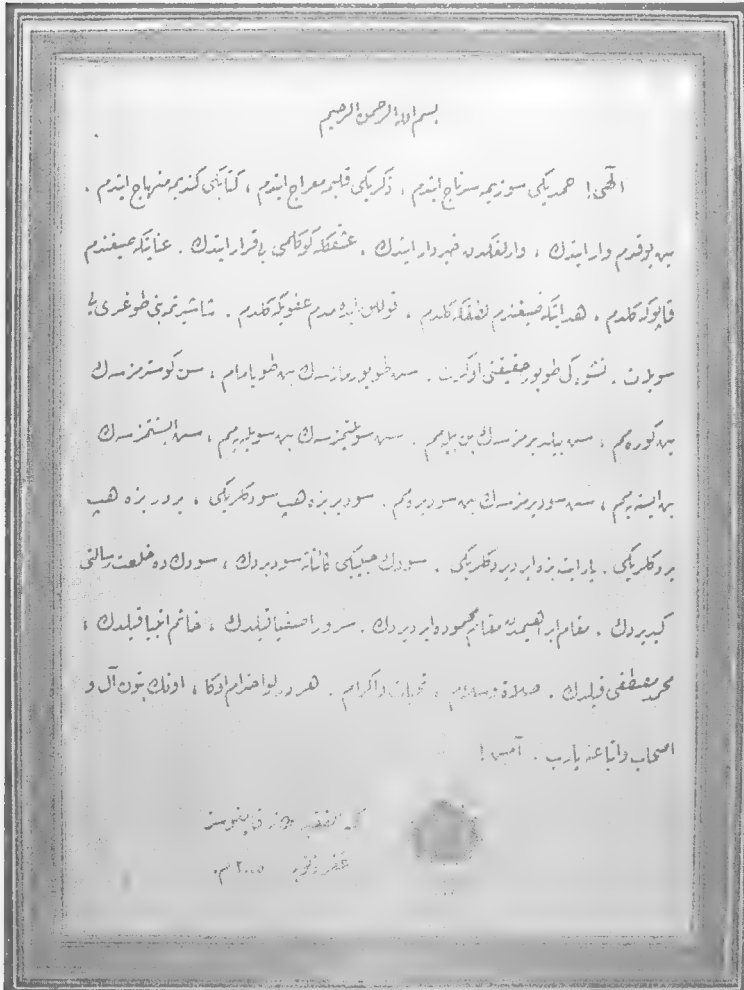 بسم الله الرحمن الرحيم
الٓهى! حمديكى سوزيمه سرتاج ايتدم ، ذكريكى قلبمه معراج ايتدم ، كتابكى كنديمه منهاج ايتدم .
بن يوقدم وار ايتدك ، وارلغكدن خبردار ايتدك ، عشقكله كوكلمى بى قرار ايتدك . عنايتكه صيغندم
قاپوكه كلدم ، هدايتكه صيغندم لطفكه كلدم ، قوللق ايده مدم عفويكه كلدم . شاشيرتمه بنى طوغرى يى
سويلت . نشوه كى طويور حقيقتى اوكرت . سن طويورمازسه ك بن طويامام ، سن كوسترمزسه ك
بن كوره مم ، سن بيلديرمزسه ك بن بيله مم . سن سويلتمزسه ك بن سويليه مم ، سن ايستتمزسه ك
بن ايستيه مم ، سن سوديرمزسه ك بن سوديره مم . سودير بزه هپ سودكلريكى ، يردير بزه هپ
يردكلريكى . يار ايت بزه ايرديردكلريكى . سودك حبيبكى كائناته سوديردك ، سودك ده خلعت رسالتى
كيديردك . مقام ابراهيمدن مقام محموده ايرديردك . سرور اصفيا قيلدك ، خاتم انبيا قيلدك ،
محمد مصطفى قيلدك . صلاة وسلام ، تحيات واكرام . هر درلو احترام اوكا ، اونك بتون آل و
اصحاب واتباعنه يارب . آمين !